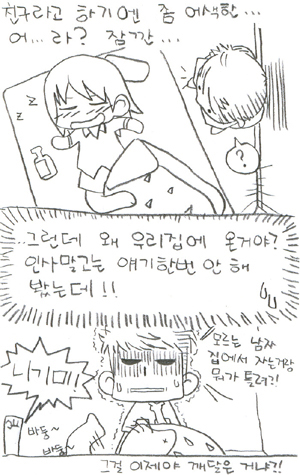 친구라고 하기엔 좀 어색한...
어...라? 잠깐...
z
z
?
...그런데 왜 우리집에 온거야?
인사말고는 얘기한번 안 해
봤는데!!
모르는 남자
집에서 자는거랑
뭐가 틀려?!
니기미!
바둥~
바둥~
그걸 이제야 깨달은 거냐?!